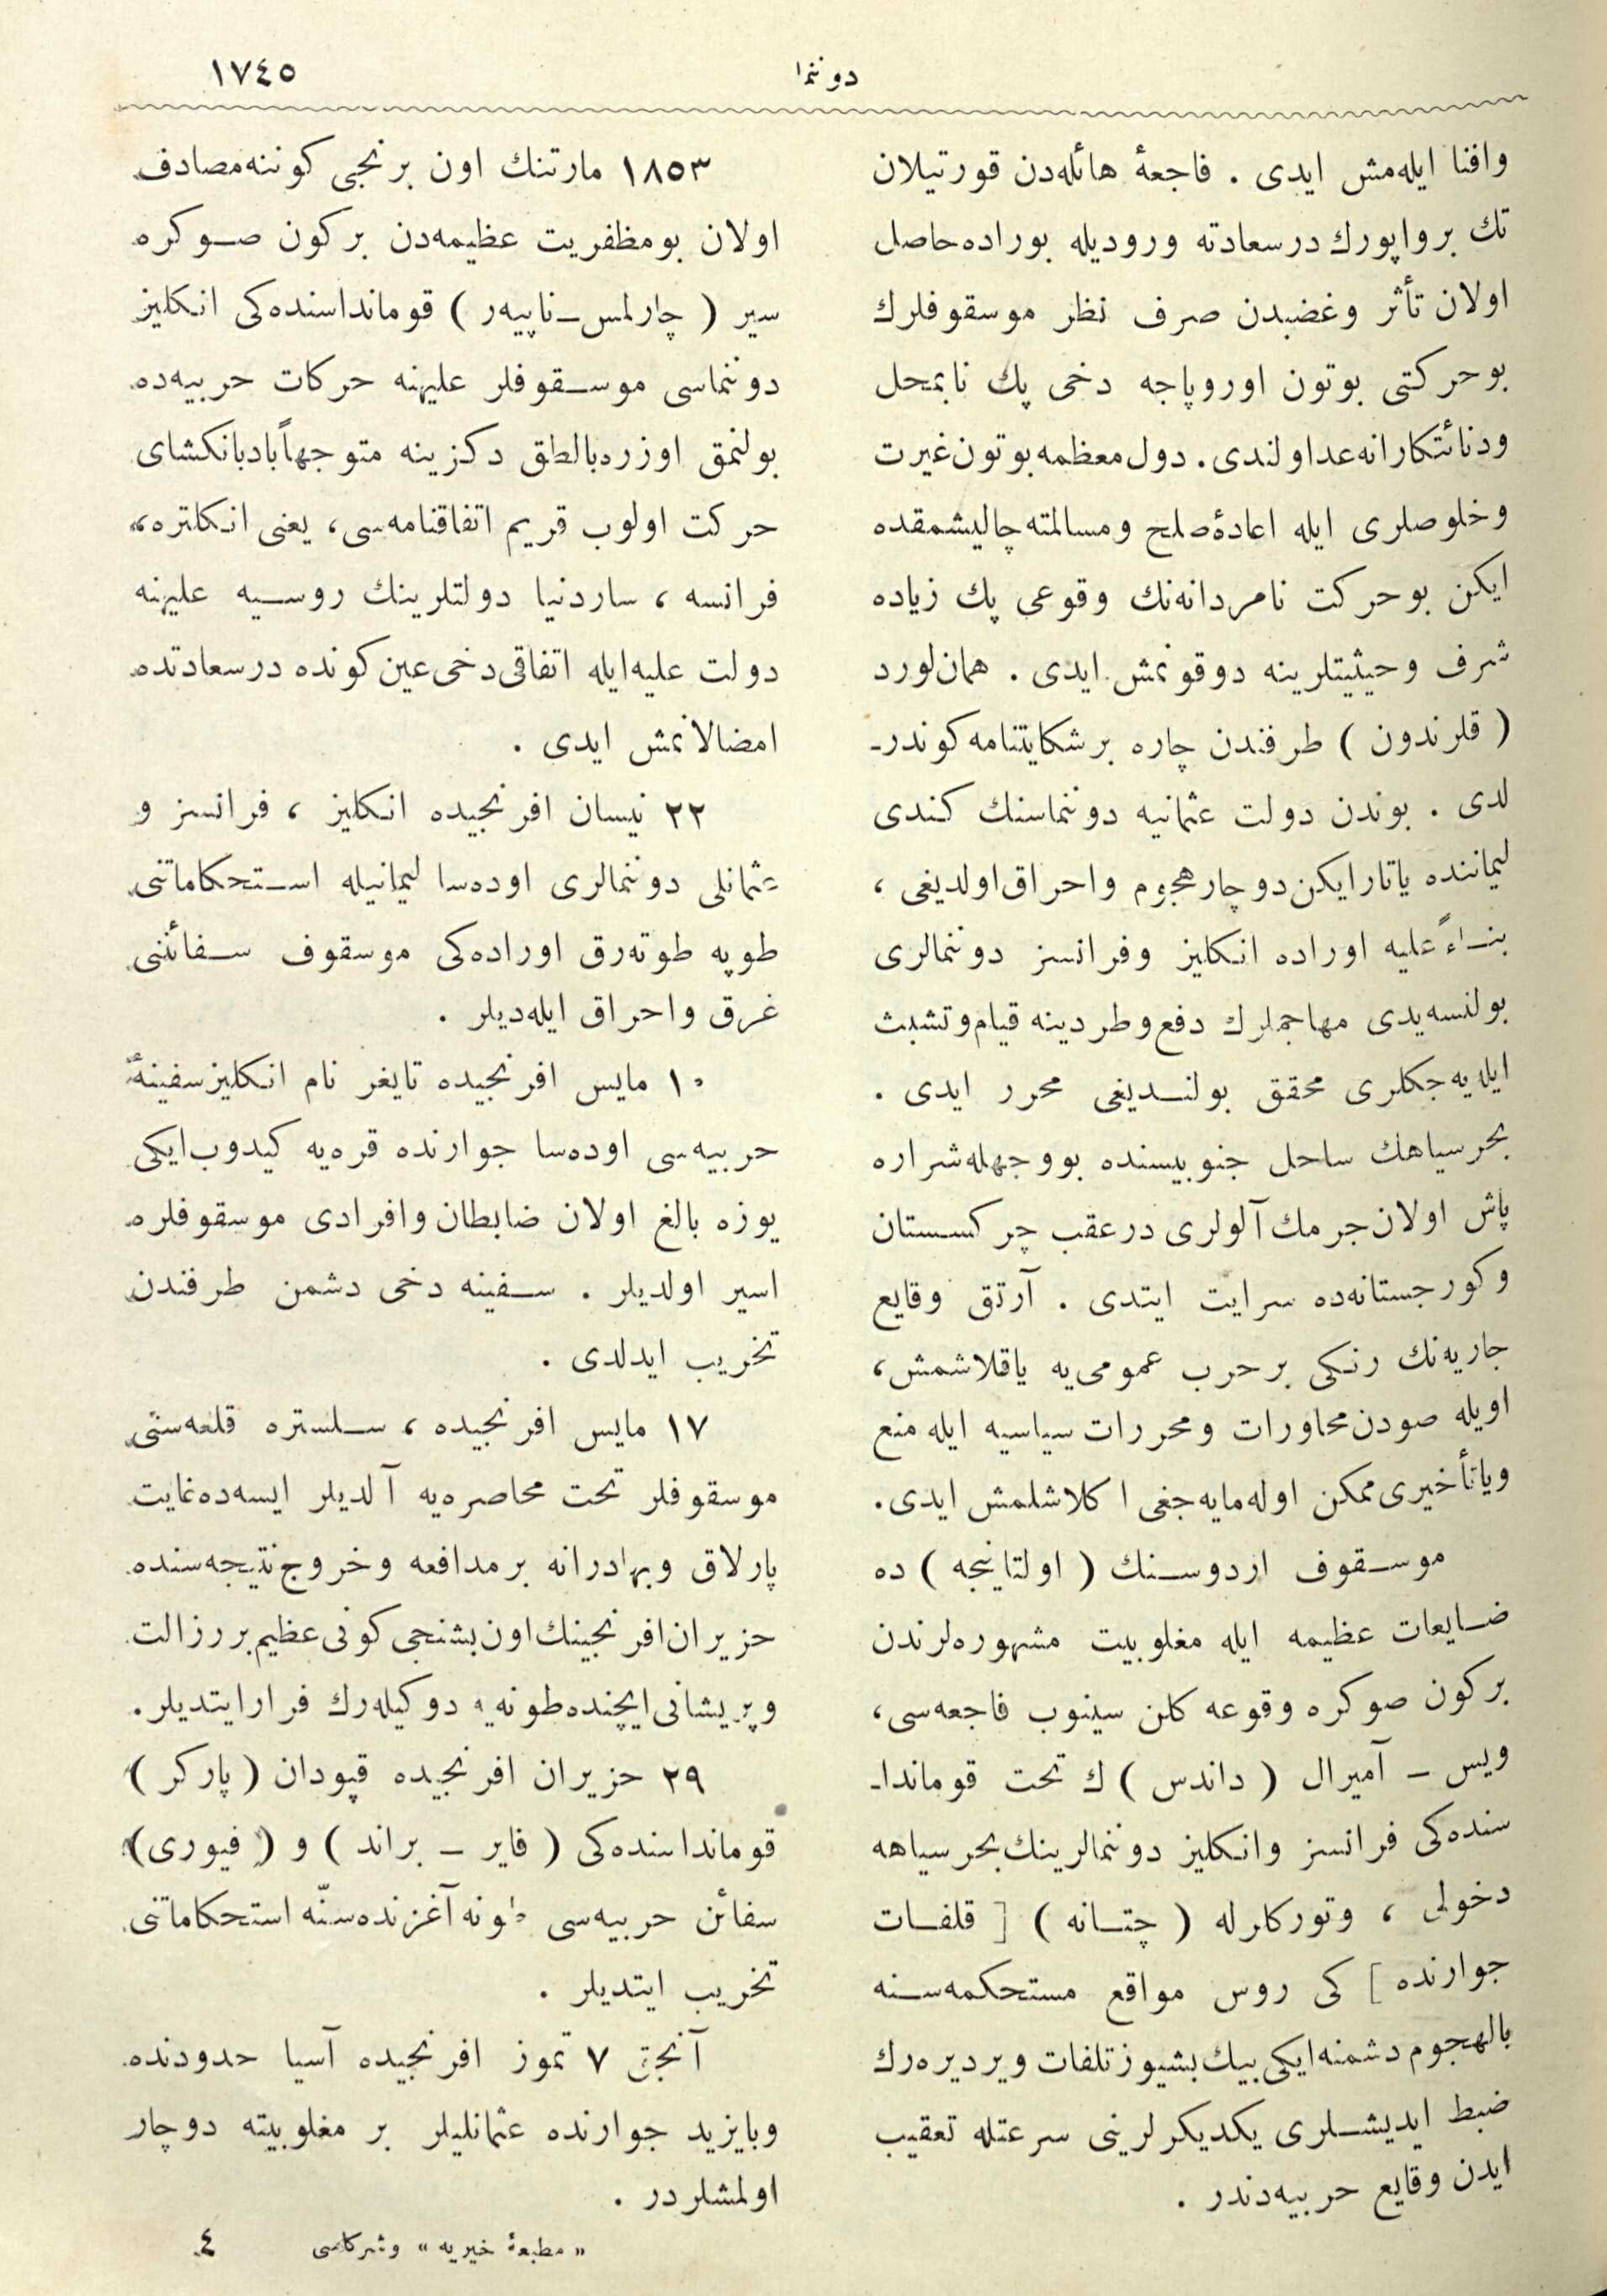 دوننما
١٧٤٥
وافنا ایله‌مش ایدی . فاجعهٔ هائله‌دن قورتیلان
تك برواپورك درسعادته ورودیله بوراده حاصل
اولان تأثر وغضبدن صرف نظر موسقوفلرك
بوحركتی بوتون اوروپاجه دخی پك نابمحل
ودنائتكارانه عد اولندی . دول معظمه بوتون غیرت
وخلوصلری ایله اعادهٔ صلح ومسالمته چالیشمقده
ایكن بوحركت نامردانه‌نك وقوعی پك زیاده
شرف وحیثیتلرینه دوقونمش ایدی . همان لورد
( قلرندون ) طرفندن چاره برشكایتنامه كوندر-
لدی . بوندن دولت عثمانیه دوننماسنك كندی
لیماننده یاتار ایكن دوچار هجوم واحراق اولدیغی ،
بنـاءً علیه اوراده انكلیز وفرانسز دوننمالری
بولنسه‌یدی مهاجملرك دفع وطردینه قیام وتشبث
ایلیه‌جكلری محقق بولنـدیغی محرر ایدی .
بحر سیاهك ساحل جنوبیسنده بووجهله شراره
پاش اولان جرمك آلولری درعقب چركسستان
وكورجستانه‌ده سرایت ایتدی . آرتق وقایع
جاریه‌نك رنكی برحرب عمومی‌یه یاقلاشمش ،
اویله صودن محاورات ومحررات سیاسیه ایله منع
ویاتأخیری ممكن اوله‌مایه‌جغی اكلاشلمش ایدی .
موسـقوف اردوسـنك ( اولتانیجه ) ده
ضـایعات عظیمه ایله مغلوبیت مشهوره‌لرندن
بركون صوكره وقوعه كلن سینوب فاجعه‌سی ،
ویس – آمیرال ( داندس ) ك تحت قوماندا-
سنده‌كی فرانسز وانكلیز دوننمالرینك بحر سیاهه
دخولی ، وتوركلرله ( چتـانه ) [ قلفـات
جوارنده ] كی روس مواقع مستحكمه‌سـنه
بالهجوم دشمنه ایكی بیك بشیوز تلفات ویردیره‌رك
ضبط ایدیشـلری یكدیكرلرینی سرعتله تعقیب
ایدن وقایع حربیه‌دندر .
١٨٥٣ مارتنك اون برنجی كوننه مصادف
اولان بومظفریت عظیمه‌دن بركون صـوكره
سیر ( چارلس–ناپیه‌ر ) قومانداسنده‌كی انكلیز
دوننماسی موسـقوفلر علیهنه حركات حربیه‌ده
بولنمق اوزره بالطق دكزینه متوجهاً بادبانكشای
حركت اولوب قریم اتفاقنامه‌سی ، یعنی انكلتره ،
فرانسه ، ساردنیا دولتلرینك روسـیه علیهنه
دولت علیه ایله اتفاقی دخی عین كونده درسعادتده
امضالانمش ایدی .
٢٢ نیسان افرنجیده انكلیز ، فرانسز و
عثمانلی دوننمالری اوده‌سا لیمانیله اسـتحكاماتنی
طوپه طوته‌رق اوراده‌كی موسقوف سـفائننی
غرق واحراق ایله‌دیلر .
١٠ مایس افرنجیده تایغر نام انكلیز سفینهٔ
حربیه‌سی اوده‌سا جوارنده قره‌یه كیدوب ایكی
یوزه بالغ اولان ضابطان وافرادی موسقوفلره
اسیر اولدیلر . سـفینه دخی دشمن طرفندن
تخریب ایدلدی .
١٧ مایس افرنجیده ، سـلستره قلعه‌سنی
موسقوفلر تحت محاصره‌یه آلدیلر ایسه‌ده غایت
پارلاق وبهادرانه برمدافعه وخروج نتیجه‌سنده
حزیران افرنجینك اون بشنجی كونی عظیم بررزالت
وپریشانی ایچنده طونه‌یه دوكیله‌رك فرار ایتدیلر .
٢٩ حزیران افرنجیده قپودان ( پاركر )
قومانداسنده‌كی ( فایر – براند ) و ( فیوری )
سفائن حربیه‌سی طونه آغزنده سنّه استحكاماتنی
تخریب ایتدیلر .
آنجق ٧ تموز افرنجیده آسیا حدودنده
وبایزید جوارنده عثمانلیلر بر مغلوبیته دوچار
اولمشلردر .
« مطبعهٔ خیریه » وشركاسی
٤